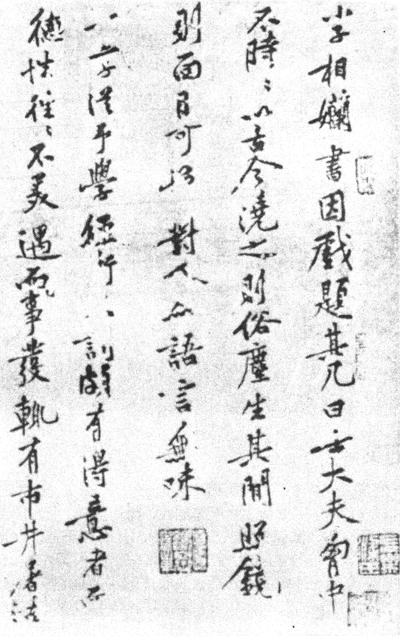 小子相嬾書因戲題其几曰士大夫胸中
不時時以古今澆之則俗塵生其間照鏡
則面目可憎對人亦語言無味
學經行訓故有得意者
德性往往不美遇事發輒有市井屠沽